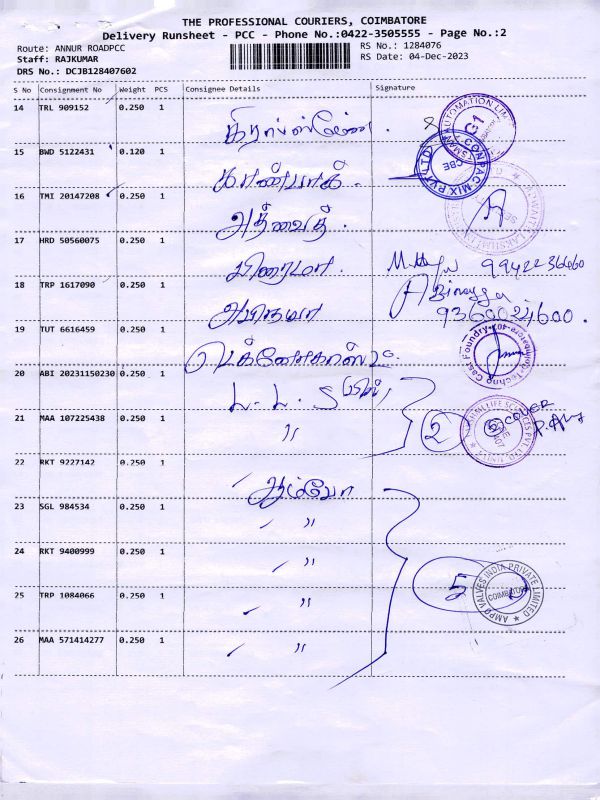 THE PROFESSIONAL COURIERS, COIMBATORE
Delivery Runsheet - PCC - Phone No.:0422-3505555 - Page No.:2
Route: ANNUR ROADPCC
RS No.: 1284076
Staff: RAJKUMAR
RS Date: 04-Dec-2023
DRS No.: DCJB128407602
S No Consignment No Weight PCS Consignee Details Signature
14 TRL 909152 0.250 1
15 BWD 5122431 0.120 1
16 TMI 20147208 0.250 1
அத்வைத்
17 HRD 50560075 0.250 1
99422 36660
18 TRP 1617090 0.250 1
Abinayya
9360024600.
19 TUT 6616459 0.250 1
20 ABI 20231150230 0.250 1
L. L. S
21 MAA 107225438 0.250 1
〃 2 COVER
22 RKT 9227142 0.250 1
ஆம்போ
23 SGL 984534 0.250 1
〃
24 RKT 9400999 0.250 1
〃 5
AMPO VALVES INDIA PRIVATE LIMITED
COIMBATORE
25 TRP 1084066 0.250 1
〃
26 MAA 571414277 0.250 1
〃